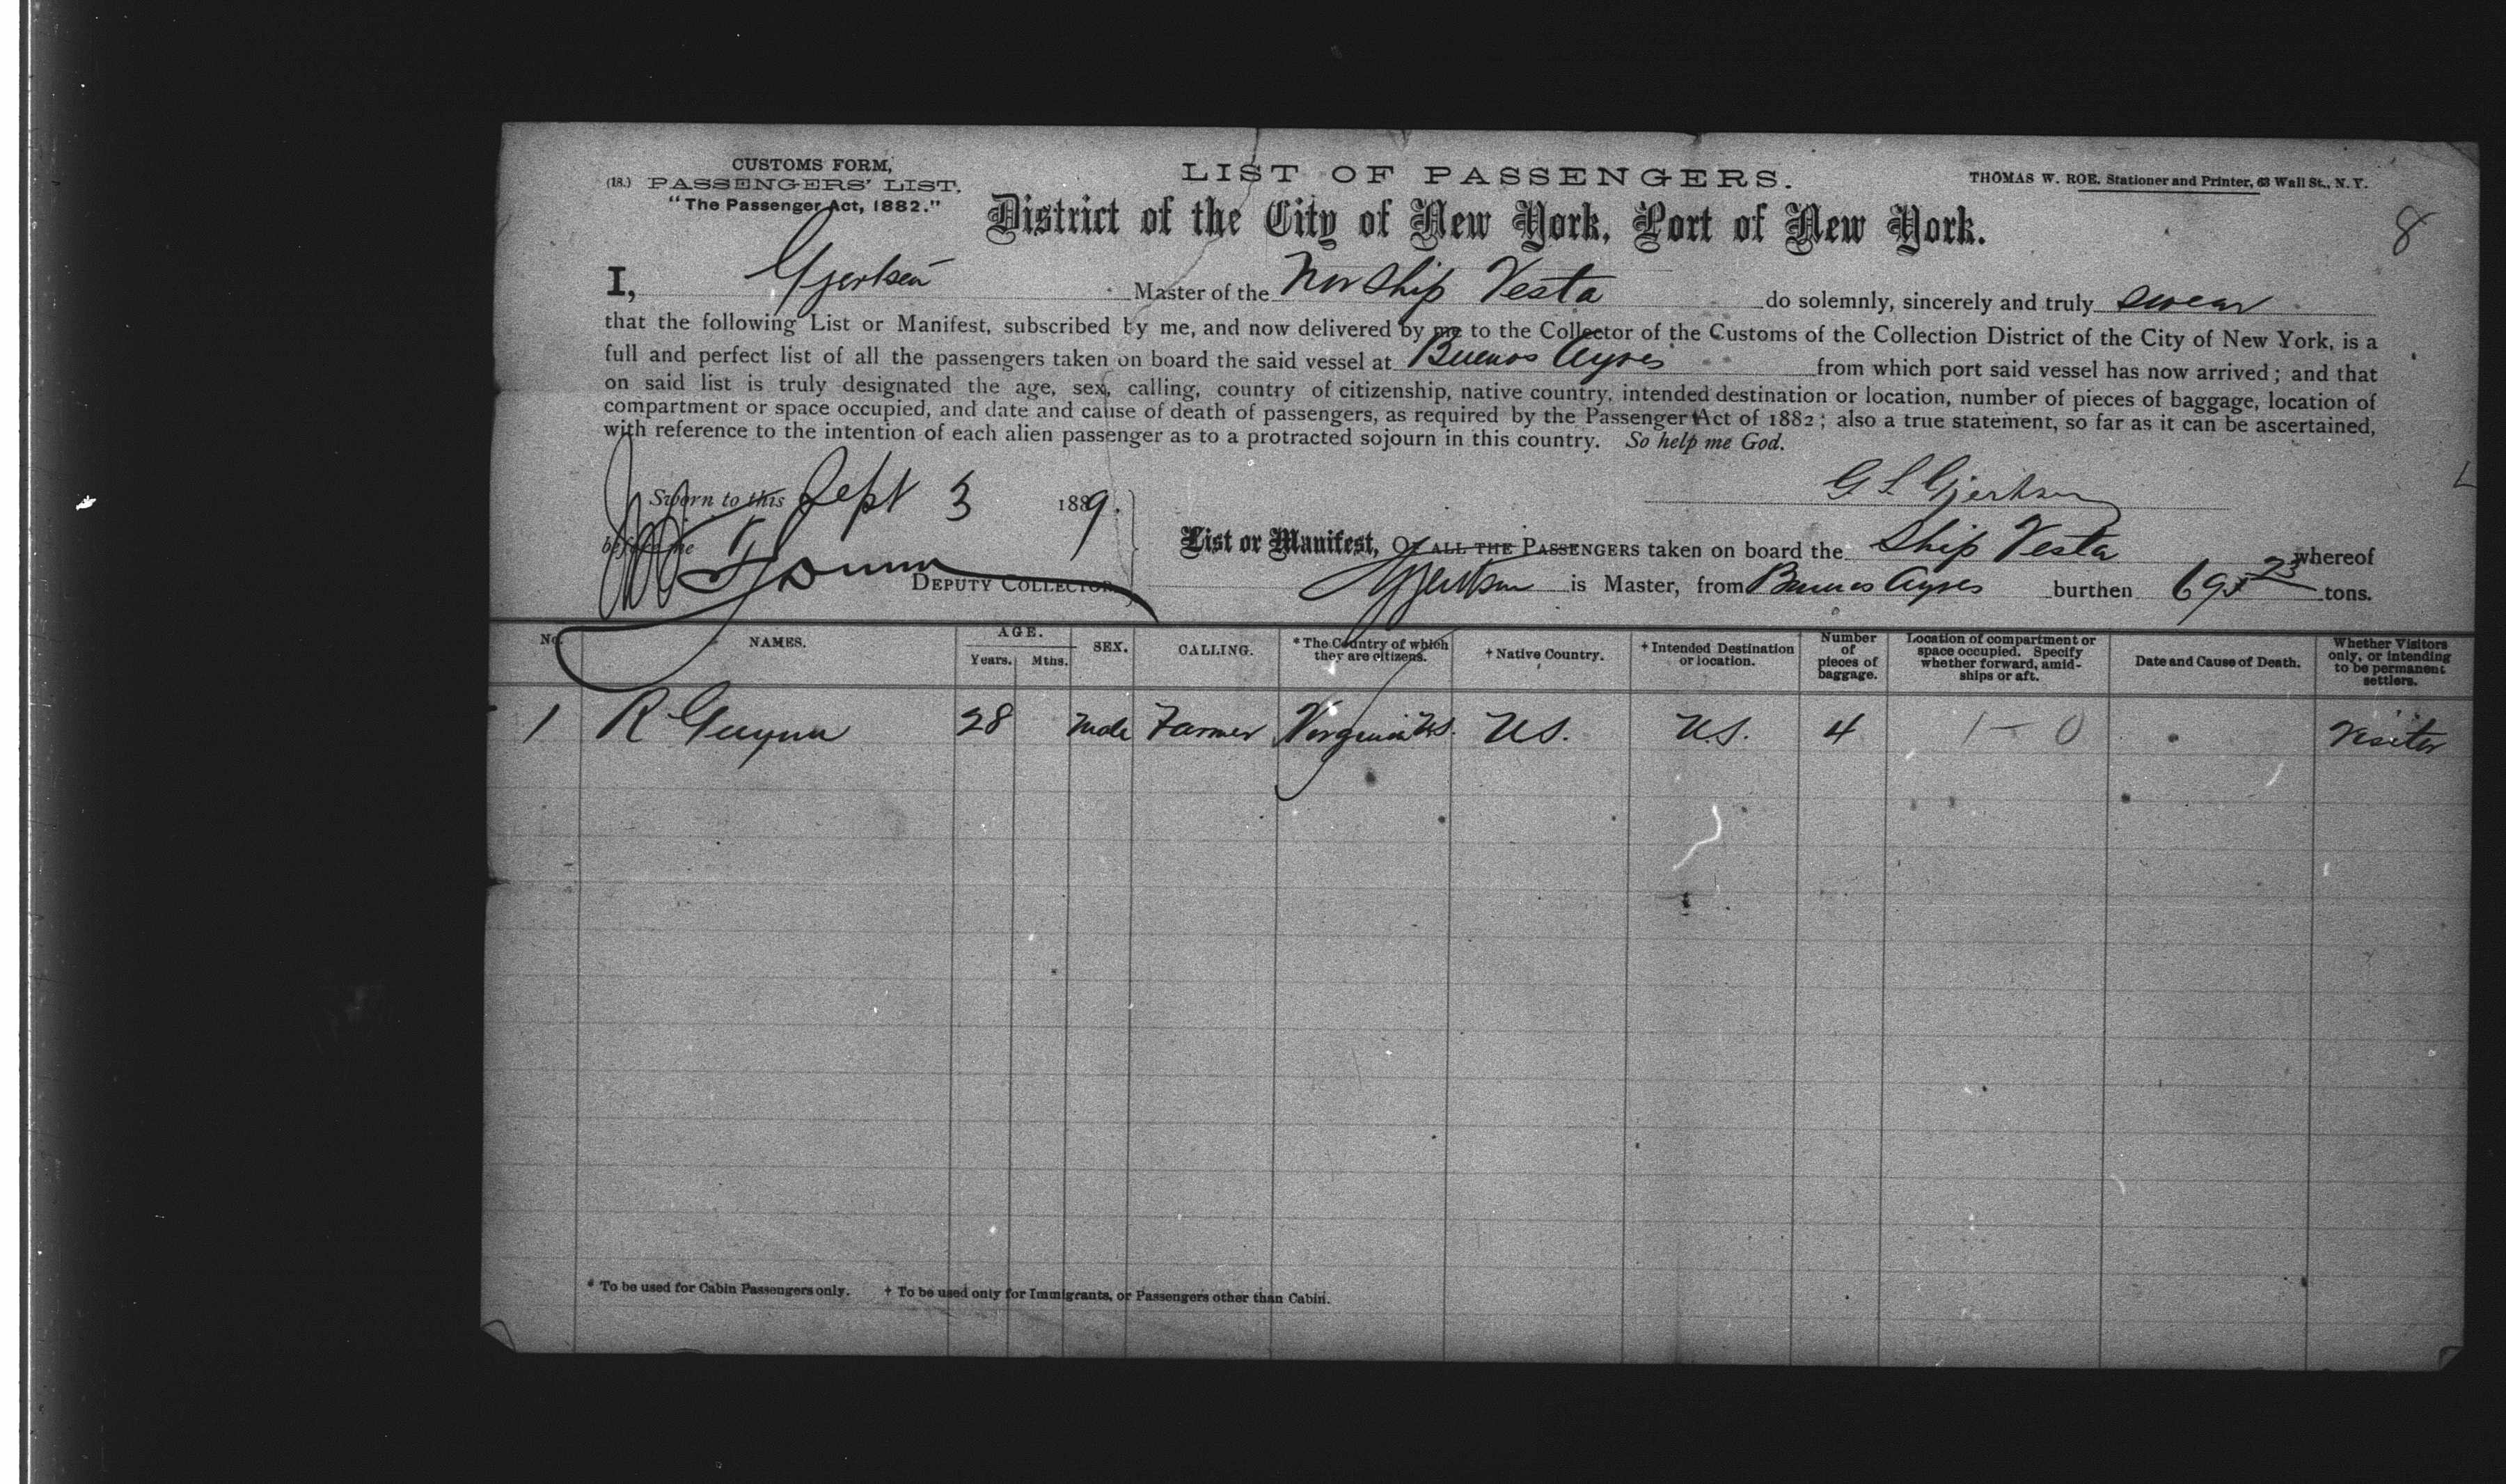 CUSTOMS FORM,
(18.) PASSENGERS' LIST.
"The Passenger Act, 1882."
LIST OF PASSENGERS.
THOMAS W. ROE, Stationer and Printer, 63 Wall St., N. Y.
District of the City of New York, Port of New York.
8
I, Gjertsen Master of the Nor Ship Vesta do solemnly, sincerely and truly swear
that the following List or Manifest, subscribed by me, and now delivered by me to the Collector of the Customs of the Collection District of the City of New York, is a
full and perfect list of all the passengers taken on board the said vessel at Buenos Ayres from which port said vessel has now arrived; and that
on said list is truly designated the age, sex, calling, country of citizenship, native country, intended destination or location, number of pieces of baggage, location of
compartment or space occupied, and date and cause of death of passengers, as required by the Passenger Act of 1882; also a true statement, so far as it can be ascertained,
with reference to the intention of each alien passenger as to a protracted sojourn in this country. So help me God.
Sworn to this Sept 3 1889.
before me
DEPUTY COLLECTOR.
G Gjertsen
List or Manifest, OF ALL THE PASSENGERS taken on board the Ship Vesta whereof
Gjertsen is Master, from Buenos Ayres burthen tons.
No. NAMES. AGE. Years. Mths. SEX. CALLING. * The Country of which they are citizens. † Native Country. † Intended Destination or location. Number of pieces of baggage. Location of compartment or space occupied. Specify whether forward, amidships or aft. Date and Cause of Death. Whether Visitors only, or intending to be permanent settlers.
1 R Guynn 28 Male Farmer Virginia U.S. U.S. U.S. 4 1 - 0 Visitor
* To be used for Cabin Passengers only. † To be used only for Immigrants, or Passengers other than Cabin.